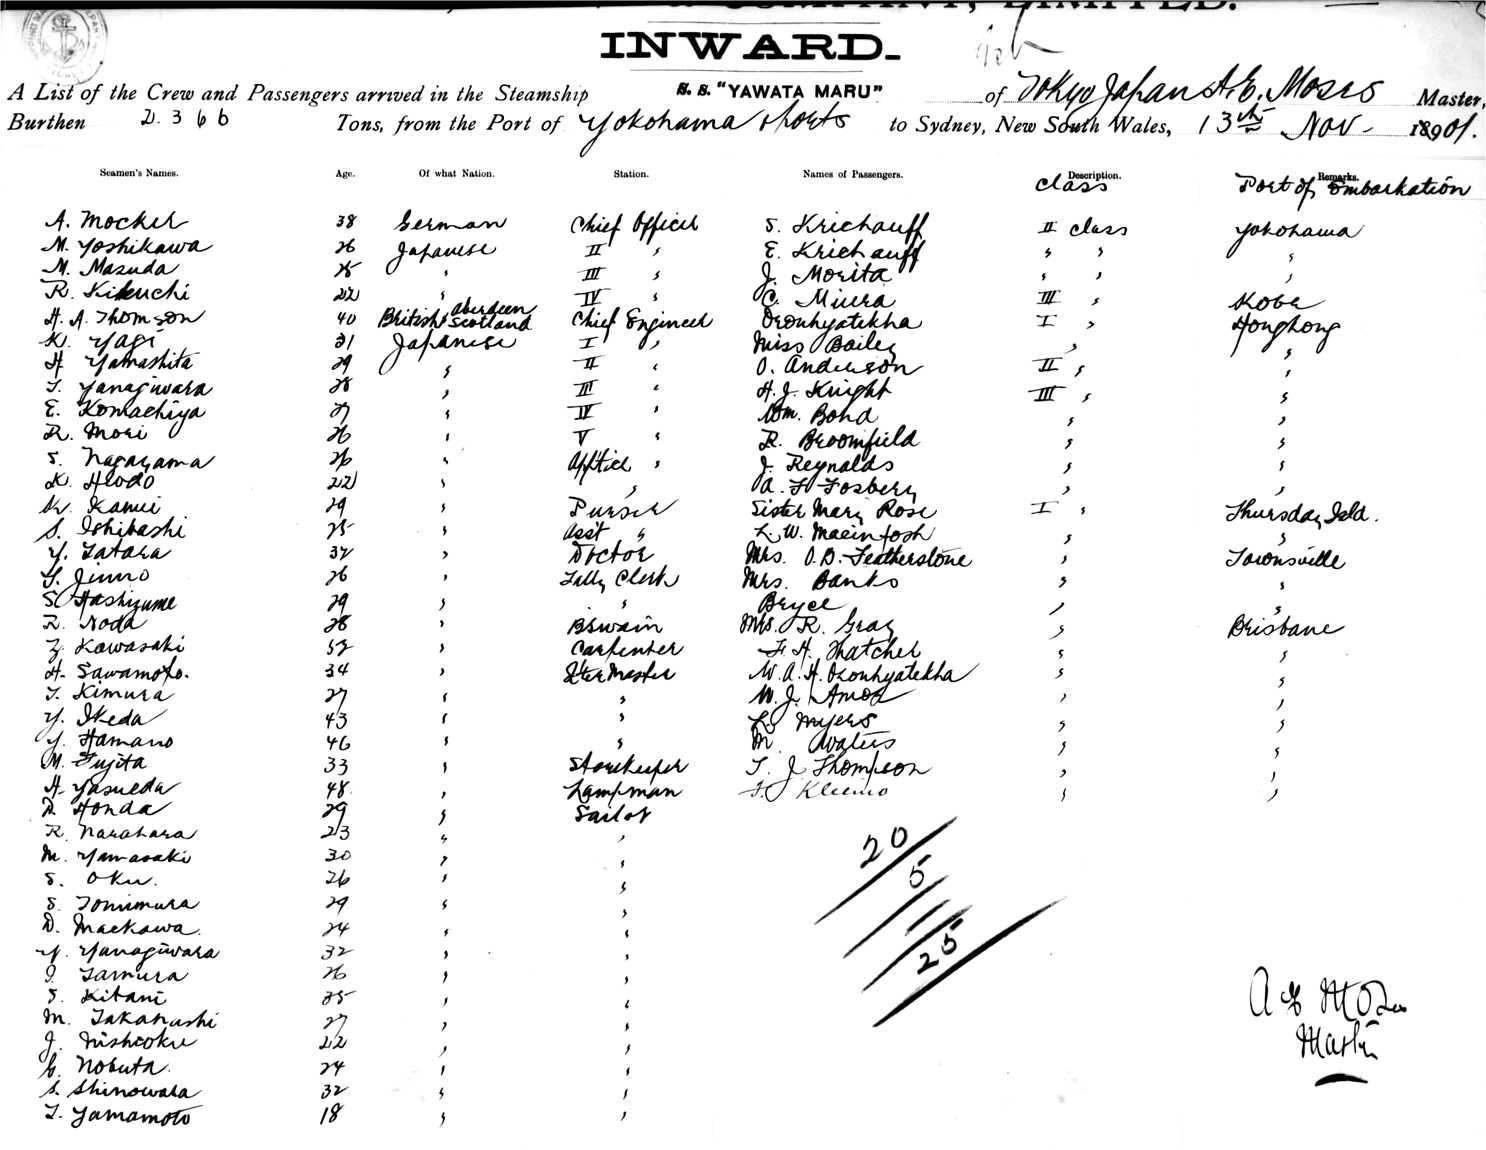 COMPANY, LIMITED.
INWARD.
A List of the Crew and Passengers arrived in the Steamship S. S. "YAWATA MARU" of Tokyo Japan A. E. Moses Master,
Burthen 2366 Tons, from the Port of Yokohama & ports to Sydney, New South Wales, 13th Nov 1901.
Seamen's Names. Age. Of what Nation. Station. Names of Passengers. Description. Remarks.
class Port of Embarkation
A. Mocker 38 German Chief Officer S. Krichauff II class Yokohama
M. Yoshikawa 26 Japanese II " E. Krichauff " " "
M. Masuda 25 " III " J. Morita " " "
R. Kikuchi 22 " IV " C. Miura III " Kobe
H. A. Thomson 40 British Aberdeen Scotland Chief Engineer Oronhyatekha I " Hongkong
K. Yagi 31 Japanese I " Miss Bailey " "
H. Yamashita 29 " II " O. Anderson II " "
T. Yanagiwara 28 " III " H. J. Knight III " "
E. Komachiya 27 " IV " Wm. Bond " "
R. Mori 26 " V " R. Broomfield " "
S. Nagayama 26 " Apptice " J. Reynolds " "
K. Hodo 22 " " A. F. Fosbery " "
K. Kamei 29 " Purser Sister Mary Rose I " Thursday Isld.
S. Ishibashi 25 " Asst " L. W. Macintosh " "
Y. Tatara 32 " Doctor Mrs. O. B. Featherstone " Townsville
Y. Jinno 26 " Tally Clerk Mrs. Banks " "
S. Hashizume 29 " " Bryce " "
R. Noda 28 " Bswain Mrs. R. Gray " Brisbane
Z. Kawasaki 52 " Carpenter F. A. Thatcher " "
H. Sawamoto. 34 " Qter Master W. A. H. Oronhyatekha " "
T. Kimura 27 " " W. J. Amos " "
Y. Ikeda 43 " " L. Myers " "
Y. Hamano 46 " " M. Waters " "
M. Fujita 33 " Storekeeper T. J. Thompson " "
H. Yasueda 48 " Lampman F. Kleino " "
D. Honda 29 " Sailor
R. Narahara 23 " "
M. Yamasaki 30 " "
S. Oku. 26 " "
S. Tomimura 29 " "
D. Maekawa. 24 " "
Y. Yanagiwara 32 " "
I. Tamura 26 " "
S. Kitani 25 " "
M. Takahashi 27 " "
J. Nishioku 22 " "
G. Nobuta. 24 " "
S. Shinowara 32 " "
T. Yamamoto 18 " "
20
5
25
A E Moses
Master